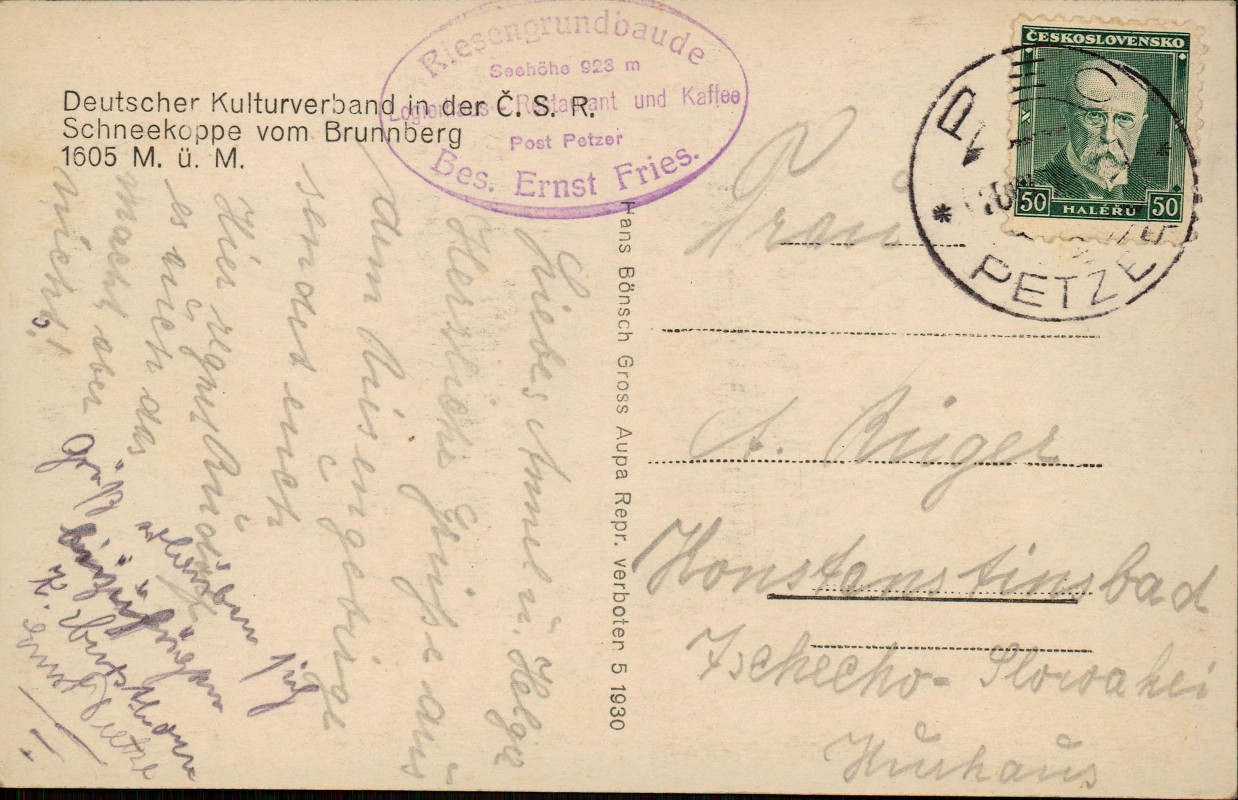 Deutscher Kulturverband in der Č. S. R.
Schneekoppe vom Brunnberg
1605 M. ü. M.
Riesengrundbaude
Seehöhe 923 m
Logierhaus - Restaurant und Kaffee
Post Petzer
Bes. Ernst Fries.
ČESKOSLOVENSKO
50 HALÉŘŮ 50
PETZER
Hans Bönsch Gross Aupa Repr. verboten 5 1930
Liebes Annel u. Helga
Herzliche Grüße aus
dem Riesengebirge
sendet euch
Hier regnet
es auch das
macht aber
nichts!
Frau
A. Rüger
Konstantinsbad
Tschecho-Slowakei
Kurhaus